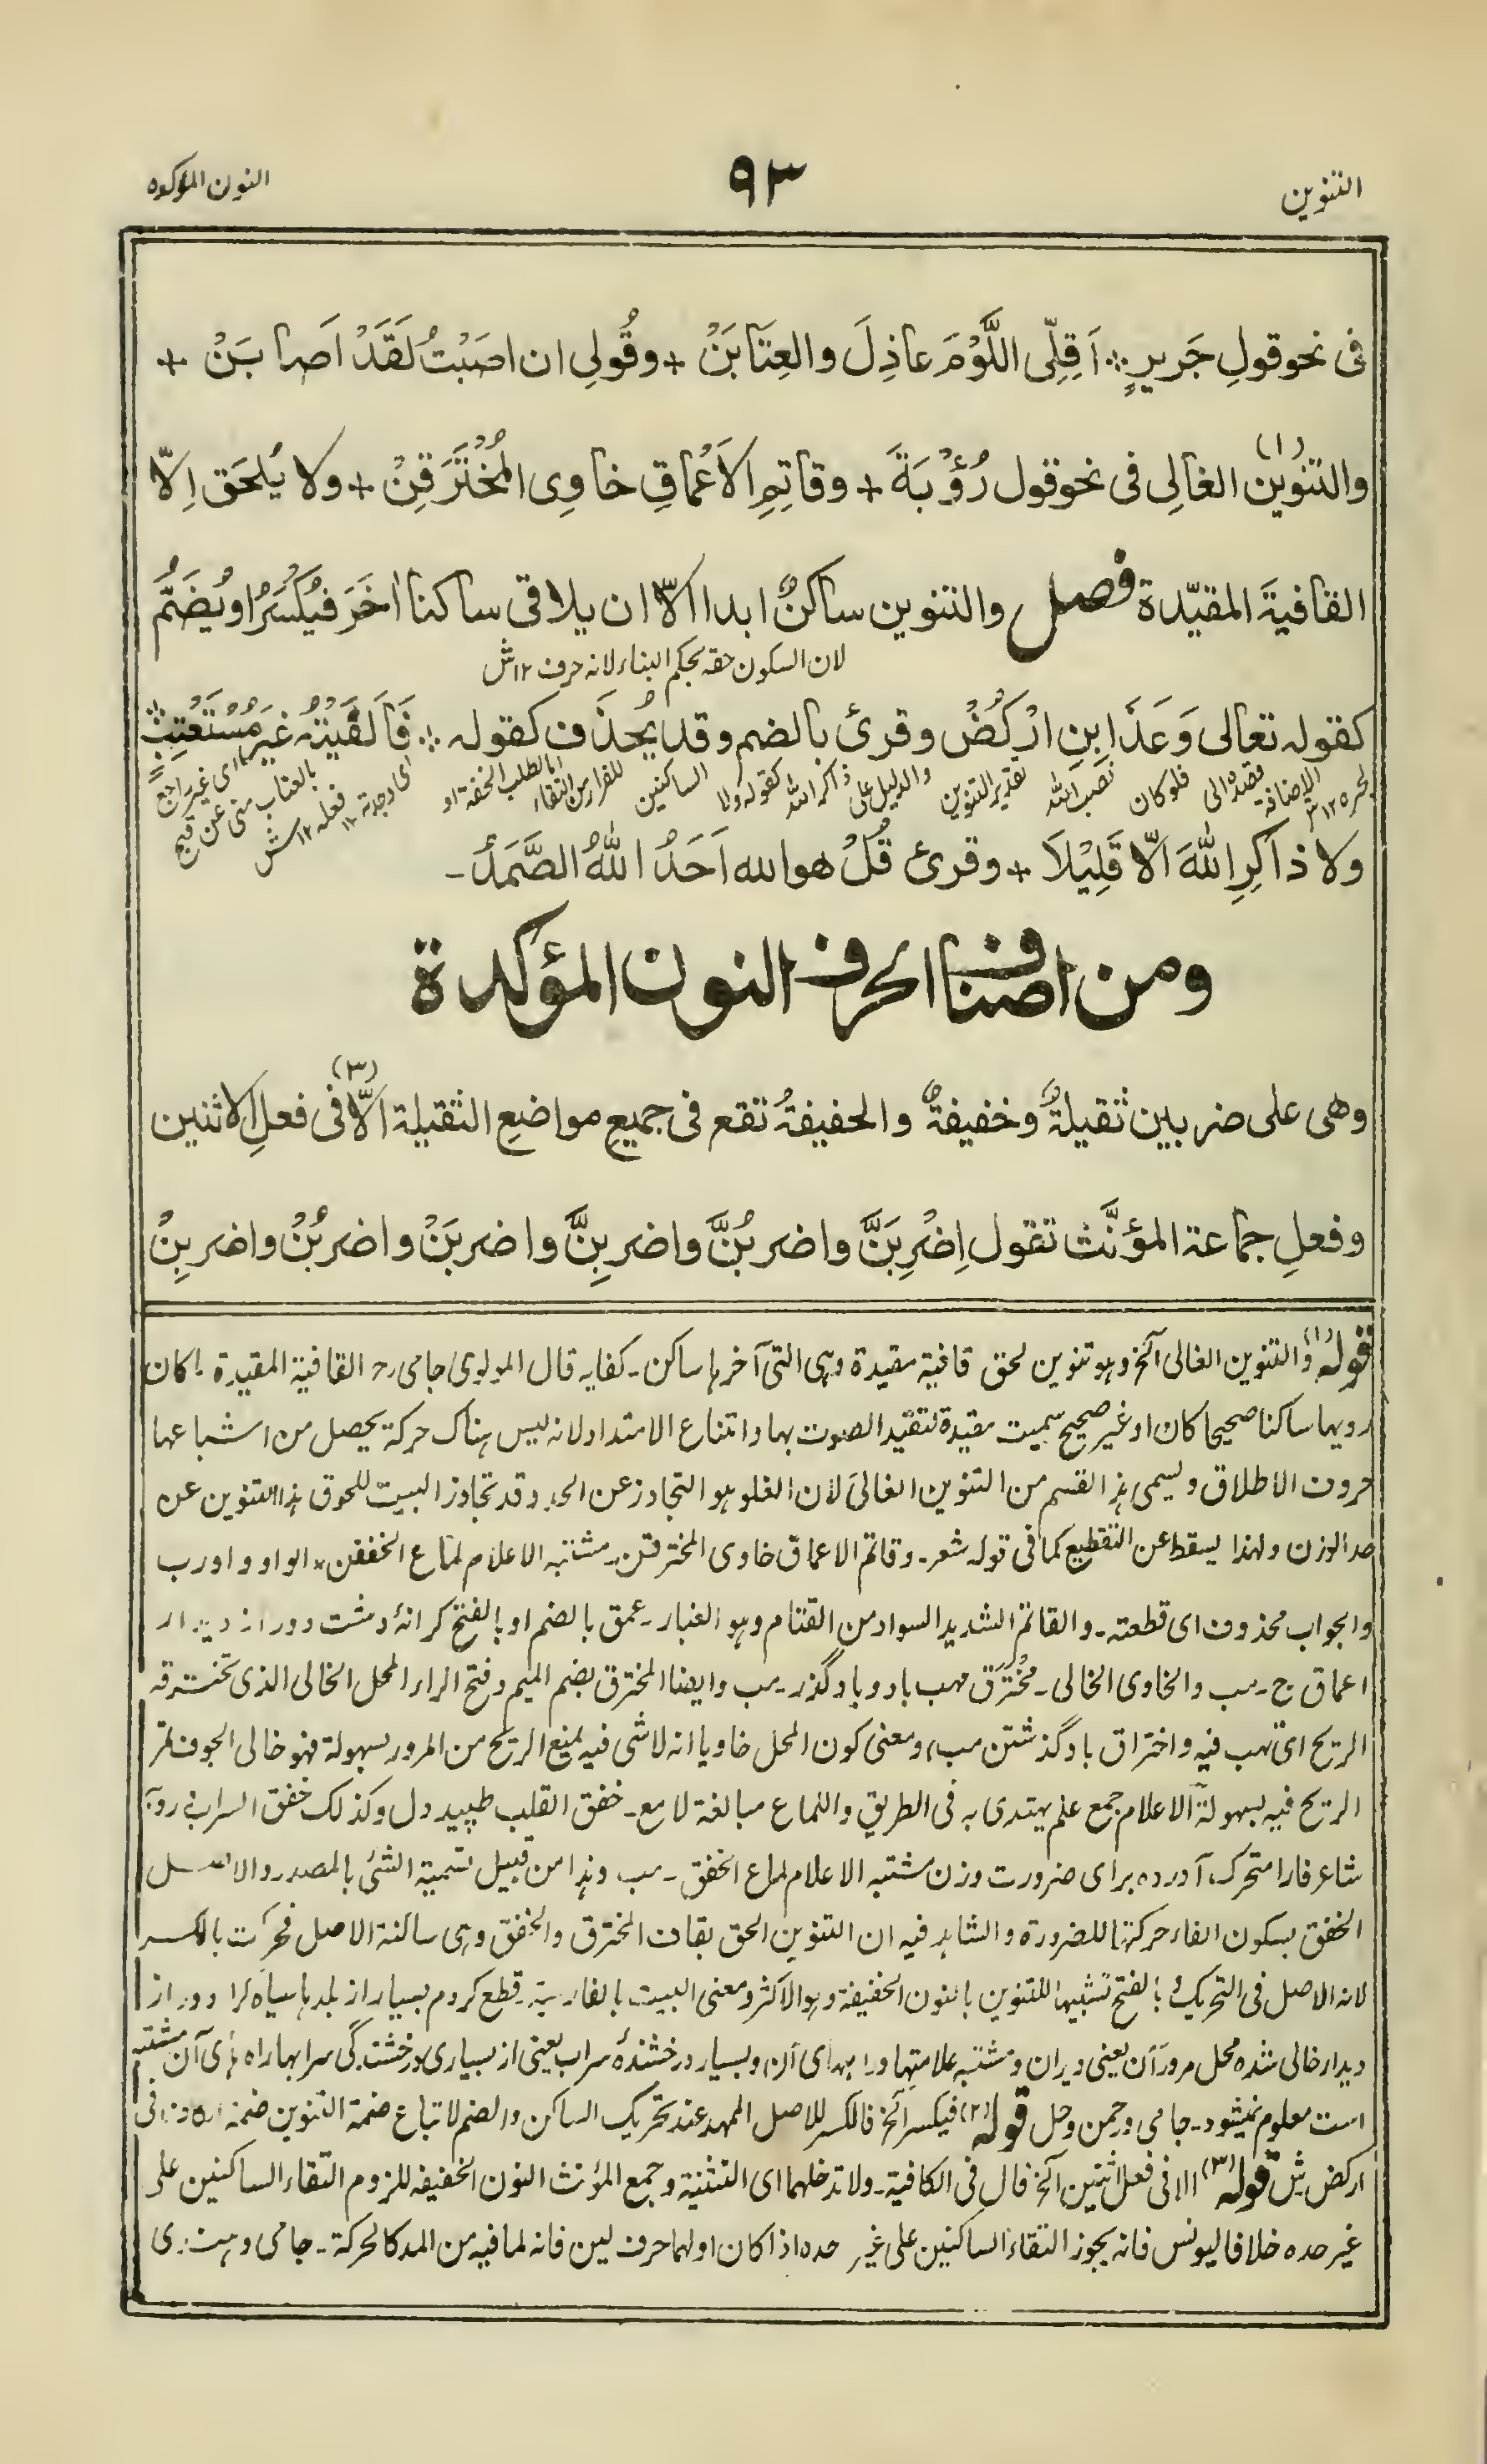 التنوين
٩٣
النون المؤكده
فى نحو قولِ جَريرٍ ؞ اَقِلِّى اللَّوْمَ عاذِلَ والعِتَابَنْ + وقُولِى ان اصَبْتُ لَقَدْ اَصابَنْ +
والتنوين (١) الغالِى فى نحو قول رُؤْبَةَ + وقاتِمِ الاَعْماقِ خاوِى المُخْتَرَقِنْ + ولا يُلحَق اِلّا
القافيةَ المقيّدة فصل والتنوين ساكنٌ ابدا الّا ان يلاقى ساكنا اٰخَرَ فيُكْسَرُ او يُضَمُّ
لان السكون حقه بحكم البناء لانه حرف ١٢ش
كقوله تعالى وَعَذَابِنِ ارْكُضْ وقرئ بالضم وقد يُحذَف كقوله ؞ فَاَلْفَيْتُهُ غَيْرَ مُسْتَعْتِبٍ ؞
الاضافة فقده الى فلو كان نصب الله تقدير التنوين والدليل على ذاكر الله كقوله ولا الساكنين للفرار من التقاء اما لطلب الخفة او
اى وجدته ١٢ فعله ١٢ش
اى غير راجع بالعتاب منى عن قبح
ولا ذاكِرِ اللهَ اّلا قَلِيْلَا + وقرئ قُلْ هو الله اَحَدُ اللهُ الصَّمَدُ ـ
ومن اصناف الحرف النون المؤكدة
وهى على ضربين ثقيلةٌ وخفيفةٌ والخفيفةُ تقع فى جميعِ مواضعِ الثقيلة الّا (٣) فى فعلِ الاثنين
وفعلِ جماعة المؤنَّث تقول اِضْرِبَنَّ واضربُنَّ واضربِنَّ واضربَنْ واضربُنْ واضربِنْ
قوله (١) والتنوين الغالى آلخ وهو تنوين لحق قافية مقيدة وهى التى آخرها ساكن ـ كفايه قال المولوى جامى رح القافية المقيدة ما كان
رويها ساكنا صحيحا كان او غير صحيح سميت مقيدة لتقيد الصوت بها وامتناع الامتداد لانه ليس هناك حركة يحصل من اشباعها
حروف الاطلاق ويسمى هذا القسم من التنوين الغالى لان الغلو هو التجاوز عن الحد وقد تجاوز البيت للحوق هذا التنوين عن
حد الوزن ولهذا يسقط عن التقطيع كما فى قوله شعر ـ وقاتم الاعماق خاوى المخترقن ـ مشتبه الاعلام لماع الخفقن ٭ الواو واو رب
والجواب محذوف اى قطعته ـ والقاتم الشديد السواد من القتام وهو الغبار ـ عمق بالضم او بالفتح كرانۂ دشت دور از ديدار
اعماق ج ـ مب والخاوى الخالى ـ مُخْتَرَق مهب باد وباد گذر ـ مب وايضا المخترق بضم الميم وفتح الراء المحل الخالى الذى تخترقه
الريح اى تهب فيه واختراق باد گذشتن مب، ومعنى كون المحل خاويا انه لا شى فيه يمنع الريح من المرور بسهولة فهو خالى الجوف لمر
الريح فيه بسهولة الاعلام جمع علم يهتدى به فى الطريق واللماع مبالغة لامع ـ خفق القلب طپيد دل وكذلك خفق السراب رؤبه
شاعر فا را متحرك آورده براى ضرورت وزن مشتبه الاعلام لماع الخفق ـ مب وهذا من قبيل تسمية الشئ بالمصدر والاصل
الخفق بسكون الفاء حركتها للضرورة والشاهد فيه ان التنوين الحق بقاف المخترق والخفق وهى ساكنة الاصل فحركت بالكسر
لانه الاصل فى التحريك او بالفتح تشبيها للتنوين بالنون الخفيفة وهو الاكثر ومعنى البيت بالفارسية قطع كردم بسيار از بلدها سياه كرا دور از
ديدار خالى شده محل مرور آن يعنى ويران ومشتبه علامتها وراهداى آن وبسيار درخشندۂ سراب يعنى از بسيارى درخشندگى سرابها راه هاى آن مشتبه
است معلوم نميشود ـ جامى ورحمن وحل قوله (٢) فيكسر آلخ فالكسر للاصل الممهد عند تحريك الساكن والضم لاتباع ضمة التنوين ضمة الكاف فى
اركض ش قوله (٣) الا فى فعل اثنين آلخ قال فى الكافية ـ ولا تدخلهما اى التثنية وجمع المؤنث النون الخفيفه للزوم التقاء الساكنين على
غير حده خلافا ليونس فانه يجوز التقاء الساكنين على غير حده اذا كان اولهما حرف لين فانه لما فيه من المد كالحركة ـ جامى